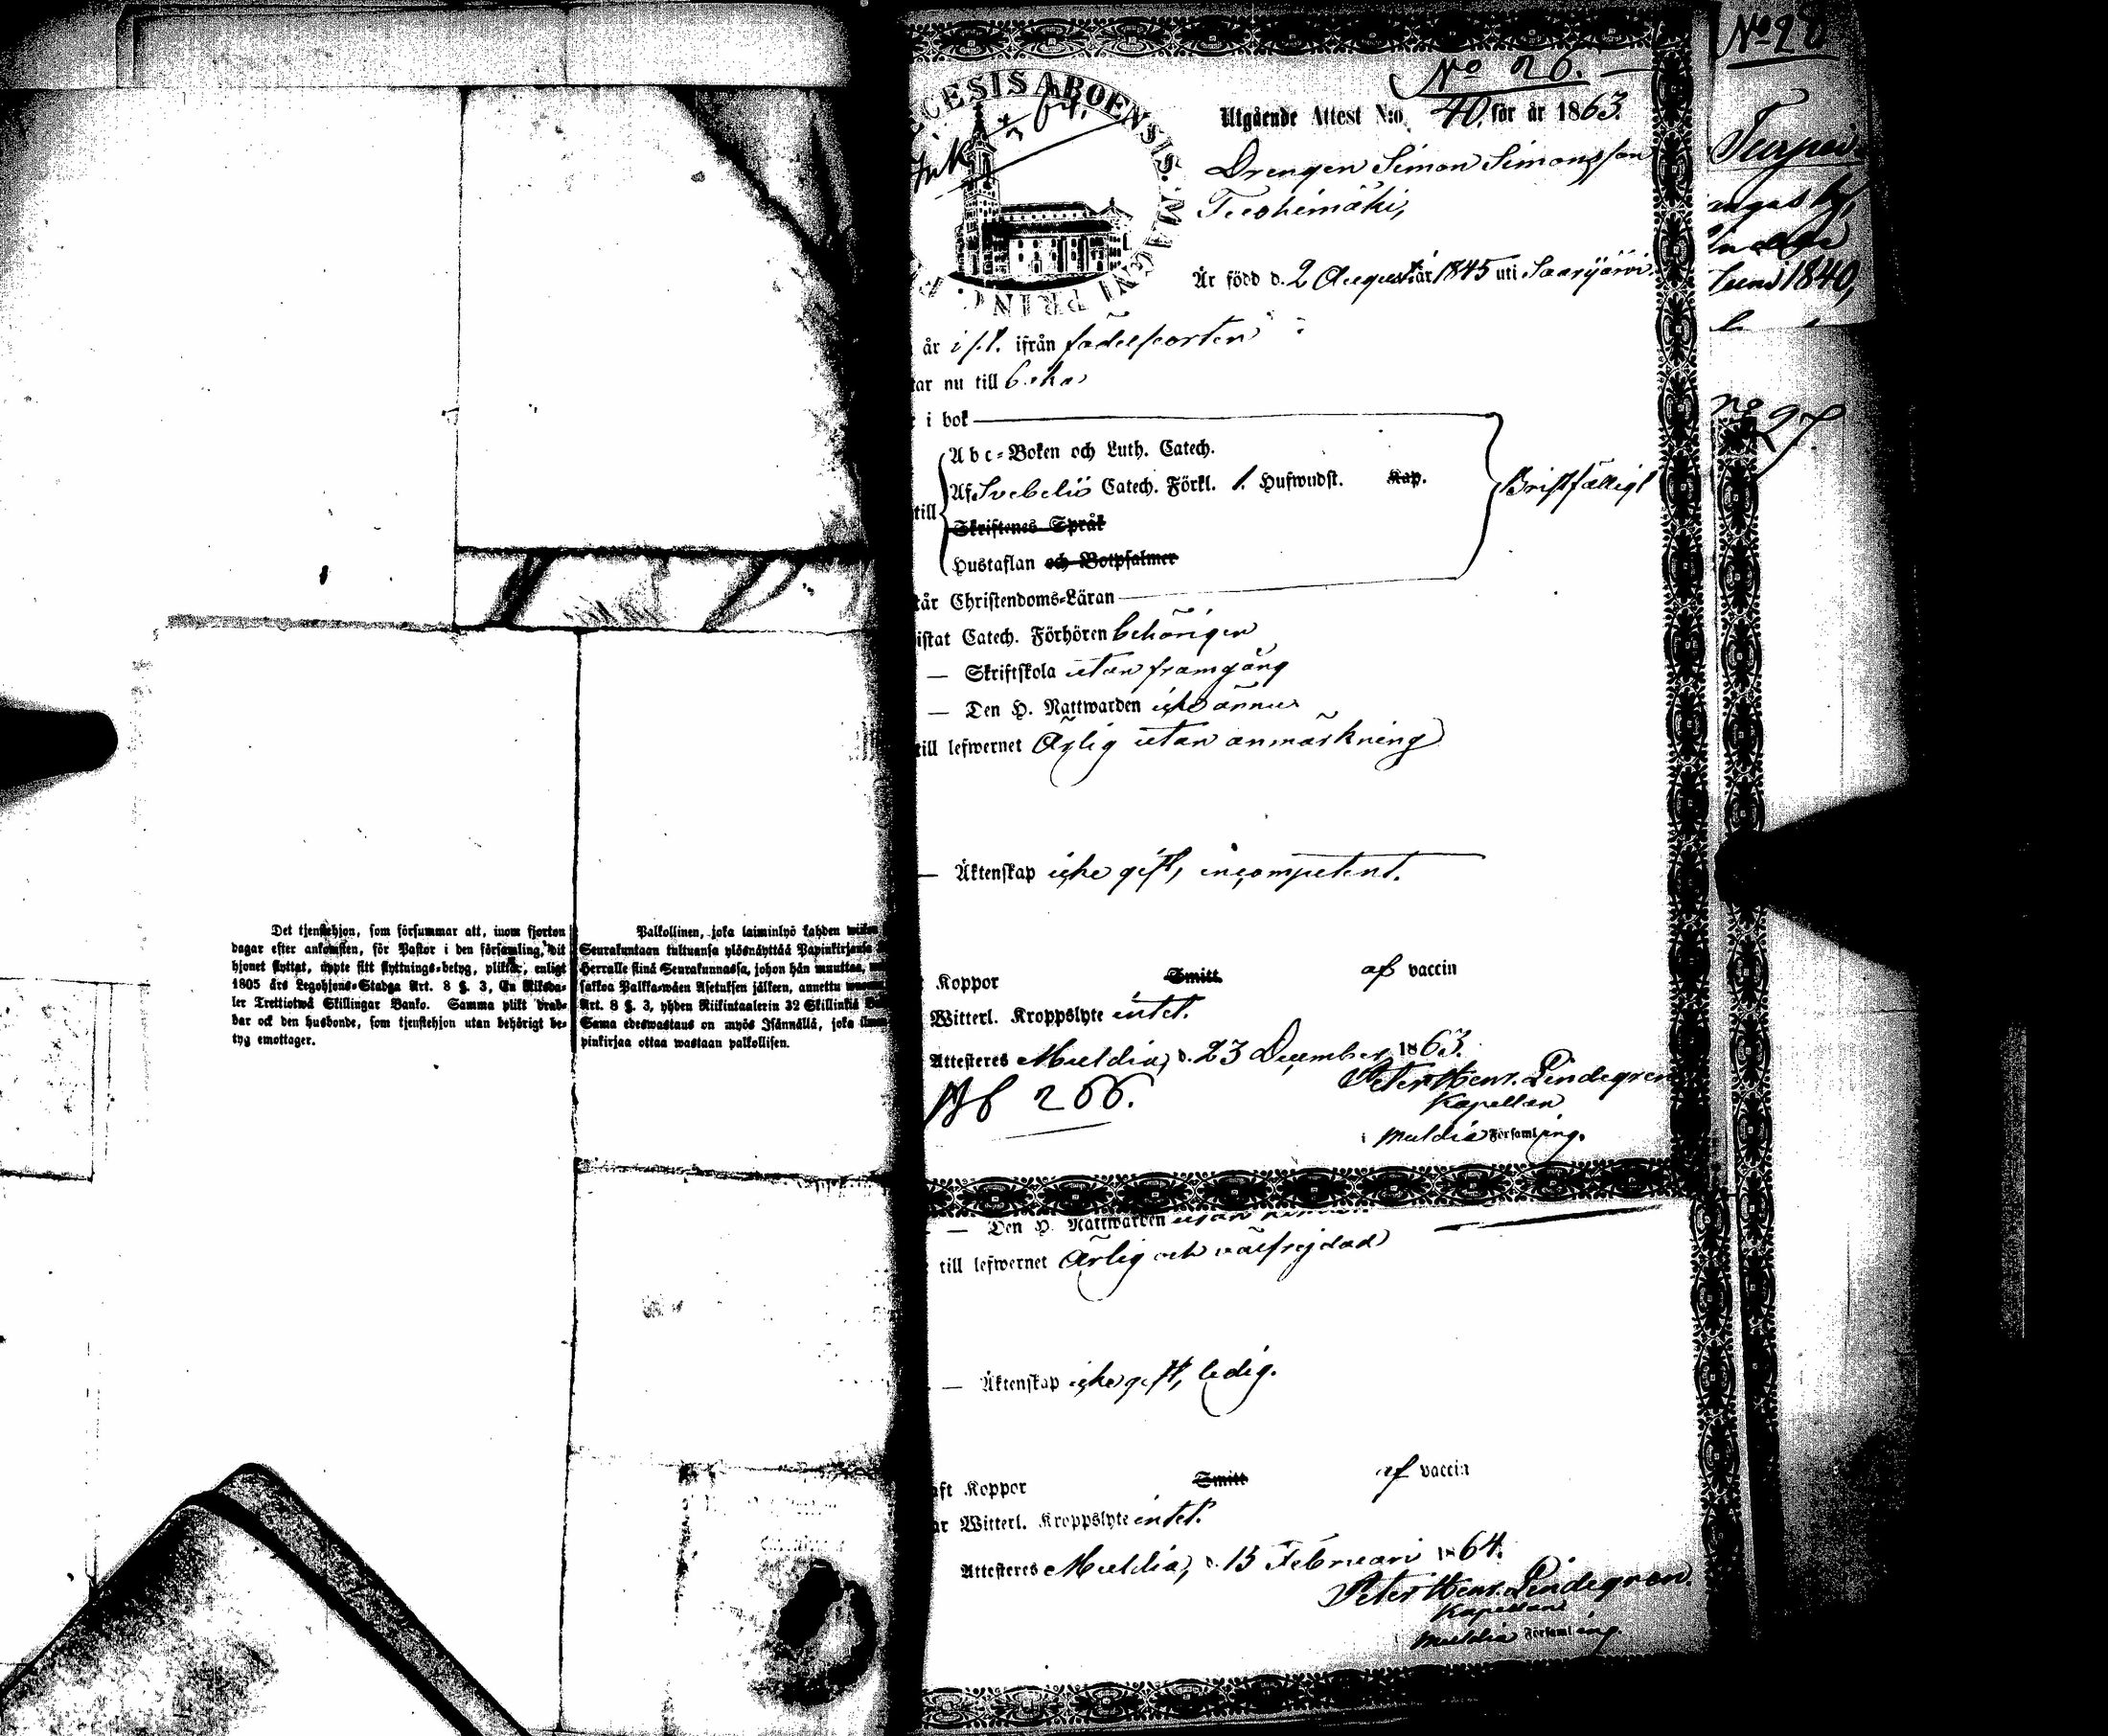 Det tjenstehjon, som försummar att, inom fjorton
dagar efter ankomsten, för Pastor i den församling, dit
hjonet flyttat, uppte sitt flyttnings-betyg, pliktar, enligt
1805 års Legohjons-Stadga Art. 8 §. 3, En Riksda-
ler Trettiotwå Skillingar Banko. Samma plikt drab-
bar ock den husbonde, som tjenstehjon utan behörigt be-
tyg emottager.
Palkollinen, joka laiminlyö kahden
Seurakuntaan tultuansa ylösnäyttää Papinkirjansa
Herralle siinä Seurakunnassa, johon hän muuttaa,
sakkoa Palkka-wäen Asetuksen jälkeen, annettu
Art. 8 §. 3, yhden Riikintaalerin 32 Skillinkiä
Sama edeswastaus on myös Isännällä, joka
pinkirjaa ottaa wastaan palkollisen.
No 26.
CESIS ABOENSIS. MAGNI PRINC.
Utgående Attest N:o 40. för år 1863.
Drengen Simon Simonsson
Är född d. 2 Augusti år 1845 uti Saarijärvi
år i s.l. ifrån födelseorten
tar nu till
i bok
Abc-Boken och Luth. Catech.
Af Svebelii Catech. Förkl. 1. Hufwudst. Kap.
till
Skriftenes Språk
Hustaflan och Botpsalmer
Bristfälligt
tår Christendoms-Läran
istat Catech. Förhören behörigen
— Skriftskola utan framgång
— Den H. Nattwarden icke ännu
till lefwernet Ärlig utan anmärkning
— Äktenskap icke gift, incompetent.
Koppor Smitt af vaccin
Witterl. Kroppslyte intet.
Attesteres Muldia, d. 23 December 1863.
Peter Henr. Lindegren
Kapellan
i Muldia Församling.
266.
— Den H. Nattwarden
till lefwernet Ärlig och välfrejdad
— Äktenskap icke gift, ledig.
aft Koppor Smitt af vaccin
ar Witterl. Kroppslyte intet.
Attesteres Muldia, d. 15 Februari 1864.
Peter Henr. Lindegren.
Kapellan
i Muldia Församling.
No 28
1840,
No 27